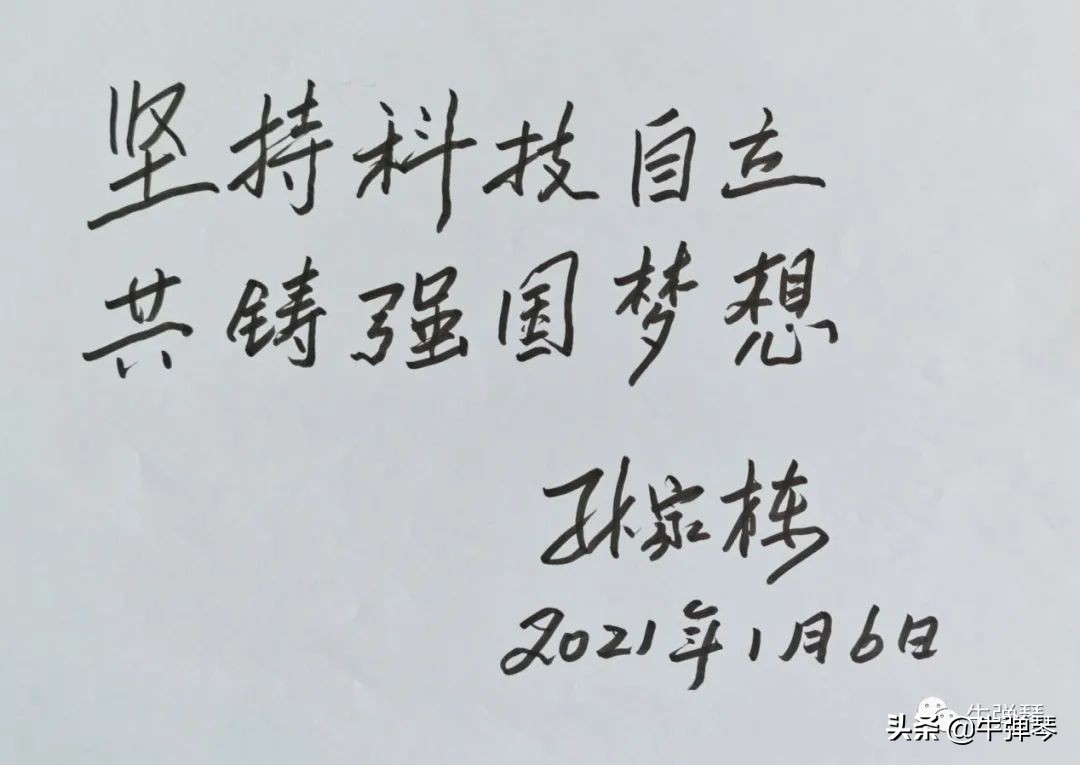 坚持科技自立
共铸强国梦想
孙家栋
2021年1月6日
牛弹琴
头条@牛弹琴